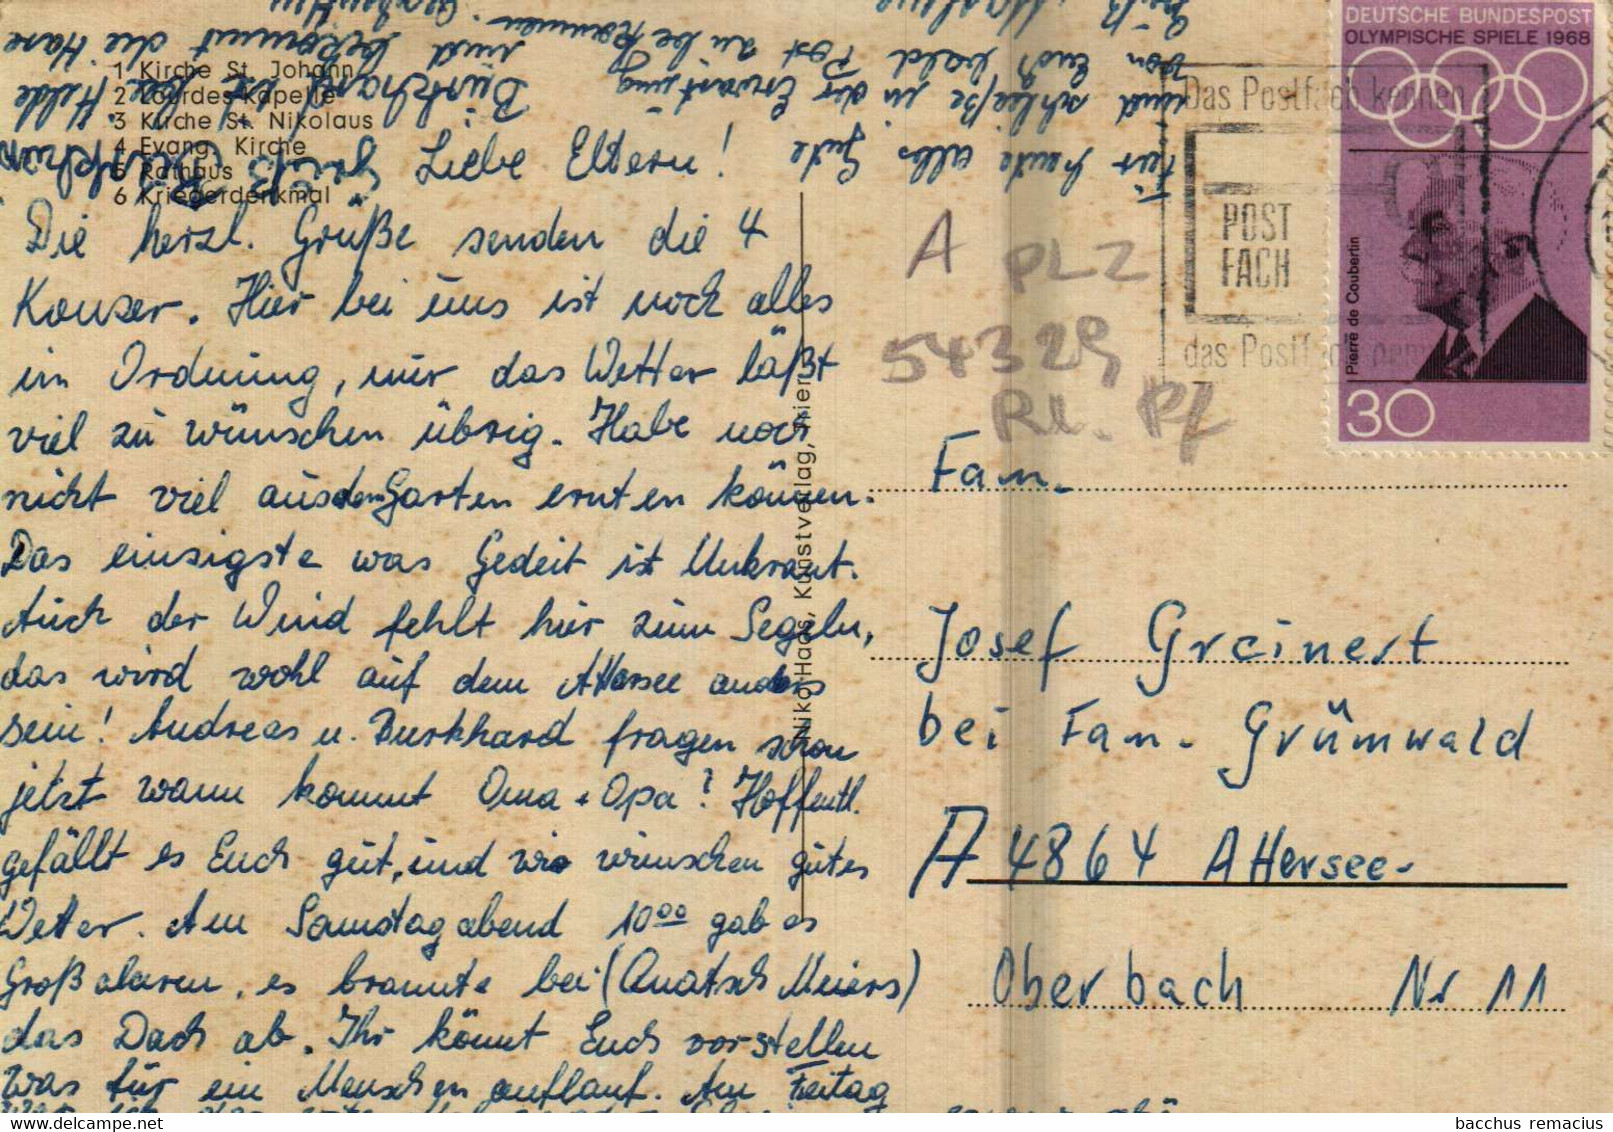 1 Kirche St. Johann
2 Lourdes-Kapelle
3 Kirche St. Nikolaus
4 Evang. Kirche
5 Rathaus
6 Kriegerdenkmal
Liebe Eltern!
Die herzl. Grüße senden die 4
Konzer. Hier bei uns ist noch alles
in Ordnung, nur das Wetter läßt
viel zu wünschen übrig. Habe noch
nicht viel aus dem Garten ernten können.
Das einzigste was Gedeit ist Unkraut.
Auch der Wind fehlt hier zum Segeln,
das wird wohl auf dem Attersee anders
sein! Andreas u. Burkhard fragen schon
jetzt wann kommt Oma + Opa? Hoffentl.
gefällt es Euch gut, und wir wünschen gutes
Wetter. Am Samstag abend 10⁰⁰ gab es
Großalarm, es brannte bei (Quatsch Meiers)
das Dach ab. Ihr könnt Euch vorstellen
was für ein Menschenauflauf. Am Freitag
Für heute alles Gute
und schließe in der Erwartung
von Euch bald Post zu bekommen.
Niko Haas, Kunstverlag, Trier
DEUTSCHE BUNDESPOST
OLYMPISCHE SPIELE 1968
Pierre de Coubertin
30
Das Postfach kennen
POST
FACH
das Postfach
A PLZ
54329
Rl. Pf
Fam.
Josef Greinert
bei Fam. Grünwald
A 4864 Attersee.
Oberbach Nr 11
bacchus remacius